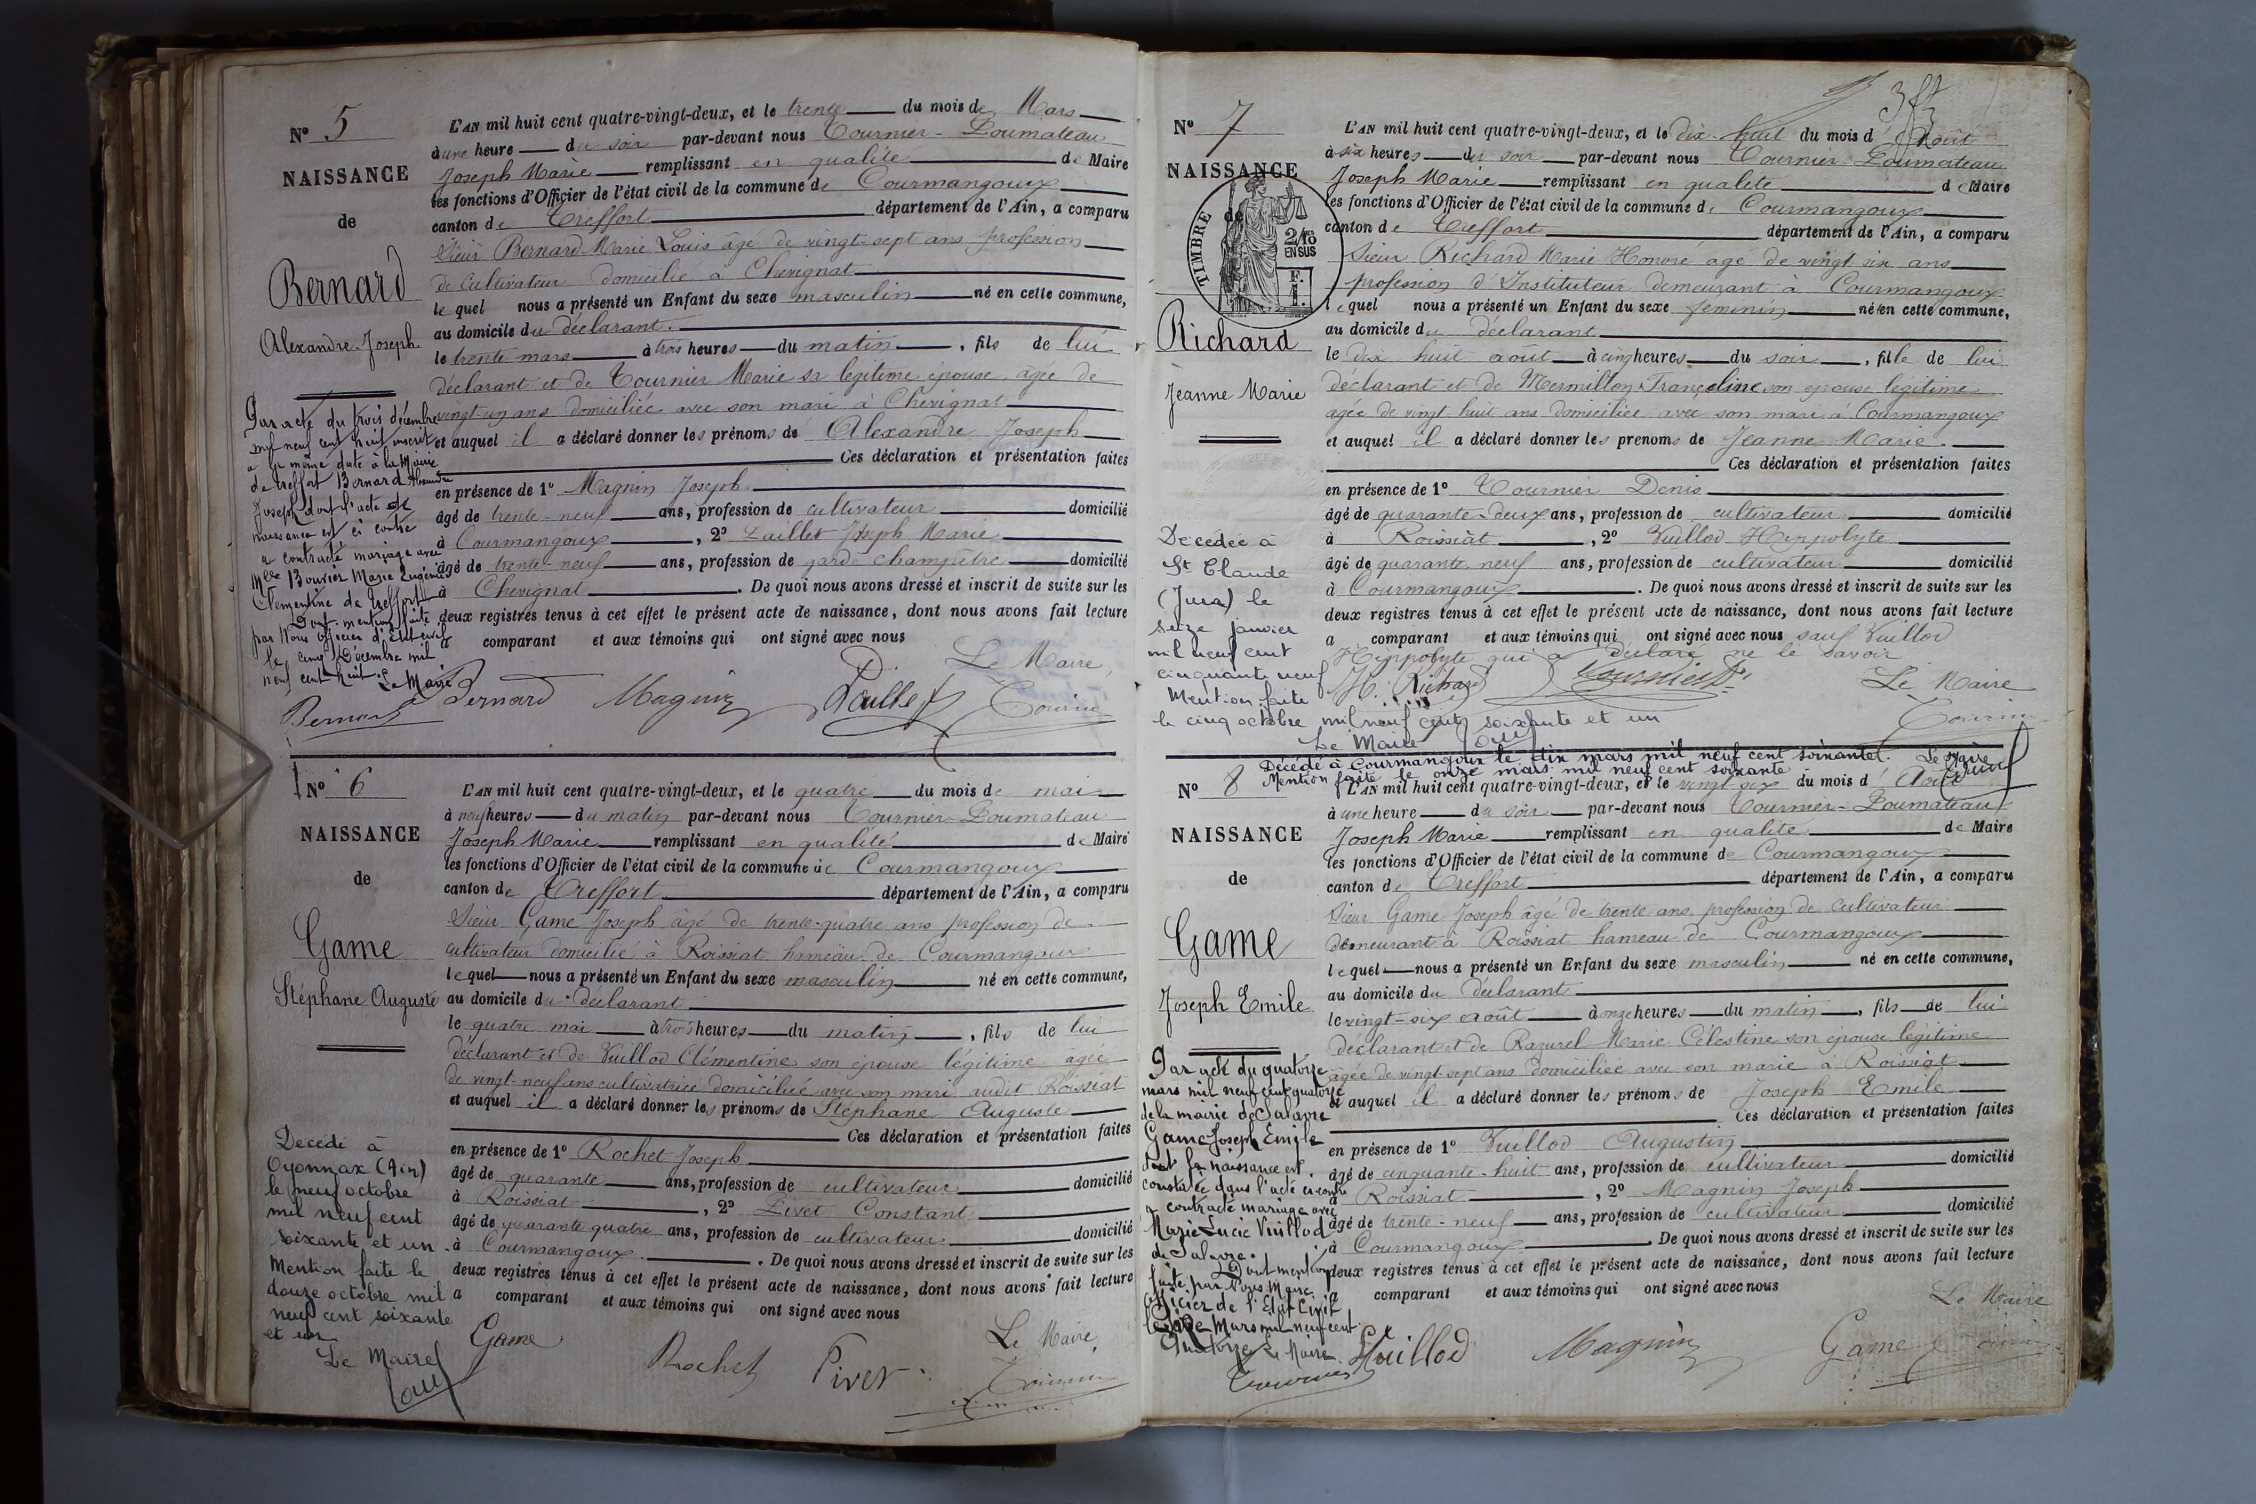 N° 5
NAISSANCE
de
Bernard
Alexandre Joseph
L'AN mil huit cent quatre-vingt-deux, et le trente du mois de Mars
à une heure du soir par-devant nous Tournier-Poumateau
Joseph Marie remplissant en qualité de Maire
les fonctions d'Officier de l'état civil de la commune de Courmangoux
canton de Treffort département de l'Ain, a comparu
Sieur Bernard Marie Louis âgé de vingt-sept ans profession
de cultivateur domicilié à Chevignat
lequel nous a présenté un Enfant du sexe masculin né en cette commune,
au domicile du déclarant.
le trente mars à trois heures du matin, fils de lui
déclarant et de Tournier Marie sa légitime épouse âgée de
vingt-un ans domiciliée avec son mari à Chevignat
et auquel il a déclaré donner les prénoms de Alexandre Joseph
Ces déclaration et présentation faites
en présence de 1° Magnin Joseph
âgé de trente-neuf ans, profession de cultivateur domicilié
à Courmangoux, 2° Paillet Joseph Marie
âgé de trente-neuf ans, profession de garde champêtre domicilié
à Chevignat. De quoi nous avons dressé et inscrit de suite sur les
deux registres tenus à cet effet le présent acte de naissance, dont nous avons fait lecture
a comparant et aux témoins qui ont signé avec nous
Le Maire
Bernard Magnin Paillet
Par acte du trois décembre
mil neuf cent huit inscrit
à la même date à la Mairie
de Treffort Bernard Alexandre
Joseph dont l'acte de
naissance est ci contre
a contracté mariage avec
Mlle Bouvier Marie Eugénie
Clémentine de Treffort
Dont mention faite
par Nous Officier d'Etat civil
le cinq Décembre mil
neuf cent huit.
Le Maire
Bernard
N° 6
NAISSANCE
de
Game
Stéphane Auguste
L'AN mil huit cent quatre-vingt-deux, et le quatre du mois de mai
à neuf heures du matin par-devant nous Tournier-Poumateau
Joseph Marie remplissant en qualité de Maire
les fonctions d'Officier de l'état civil de la commune de Courmangoux
canton de Treffort département de l'Ain, a comparu
Sieur Game Joseph âgé de trente-quatre ans profession de
cultivateur domicilié à Roissiat hameau de Courmangoux
lequel nous a présenté un Enfant du sexe masculin né en cette commune,
au domicile du déclarant
le quatre mai à trois heures du matin, fils de lui
déclarant et de Vuillod Clémentine son épouse légitime âgée
de vingt-neuf ans cultivatrice domiciliée avec son mari audit Roissiat
et auquel il a déclaré donner les prénoms de Stéphane Auguste
Ces déclaration et présentation faites
en présence de 1° Rochet Joseph
âgé de quarante ans, profession de cultivateur domicilié
à Roissiat, 2° Pivet Constant
âgé de quarante quatre ans, profession de cultivateur domicilié
à Courmangoux. De quoi nous avons dressé et inscrit de suite sur les
deux registres tenus à cet effet le présent acte de naissance, dont nous avons fait lecture
a comparant et aux témoins qui ont signé avec nous
Le Maire,
Game Rochet Pivet
Décédé à
Oyonnax (Ain)
le neuf octobre
mil neuf cent
soixante et un.
Mention faite le
douze octobre mil
neuf cent soixante
et un
Le Maire
N° 7
NAISSANCE
de
TIMBRE
2/10
EN SUS
F.
1.
Richard
Jeanne Marie
L'AN mil huit cent quatre-vingt-deux, et le dix-huit du mois d'Août
à six heures du soir par-devant nous Tournier Poumateau
Joseph Marie remplissant en qualité de Maire
les fonctions d'Officier de l'état civil de la commune de Courmangoux
canton de Treffort département de l'Ain, a comparu
Sieur Richard Marie Honoré âgé de vingt six ans
profession d'Instituteur demeurant à Courmangoux
lequel nous a présenté un Enfant du sexe féminin née en cette commune,
au domicile du déclarant
le dix huit août à cinq heures du soir, fille de lui
déclarant et de Mermillon Françeline son épouse légitime
âgée de vingt huit ans domiciliée avec son mari à Courmangoux
et auquel il a déclaré donner les prénoms de Jeanne Marie.
Ces déclaration et présentation faites
en présence de 1° Tournier Denis
âgé de quarante-deux ans, profession de cultivateur domicilié
à Roissiat, 2° Vuillod Hippolyte
âgé de quarante neuf ans, profession de cultivateur domicilié
à Courmangoux. De quoi nous avons dressé et inscrit de suite sur les
deux registres tenus à cet effet le présent acte de naissance, dont nous avons fait lecture
a comparant et aux témoins qui ont signé avec nous sauf Vuillod
Hippolyte qui a déclaré ne le savoir
H. Richard Tournier Le Maire
Décédée à
St Claude
(Jura) le
seize janvier
mil neuf cent
cinquante neuf
Mention faite
le cinq octobre mil neuf cent soixante et un
Le Maire
Décédé à Courmangoux le dix mars mil neuf cent soixante. Le Maire
Mention faite le onze mars mil neuf cent soixante
N° 8
NAISSANCE
de
Game
Joseph Emile
L'AN mil huit cent quatre-vingt-deux, et le vingt-six du mois d'Août
à une heure du soir par-devant nous Tournier-Poumateau
Joseph Marie remplissant en qualité de Maire
les fonctions d'Officier de l'état civil de la commune de Courmangoux
canton de Treffort département de l'Ain, a comparu
Sieur Game Joseph âgé de trente ans profession de cultivateur
demeurant à Roissiat hameau de Courmangoux
lequel nous a présenté un Enfant du sexe masculin né en cette commune,
au domicile du déclarant
le vingt-six août à onze heures du matin, fils de lui
déclarant et de Razurel Marie Célestine son épouse légitime
âgée de vingt sept ans domiciliée avec son marie à Roissiat
et auquel il a déclaré donner les prénoms de Joseph Emile
Ces déclaration et présentation faites
en présence de 1° Vuillod Augustin
âgé de cinquante-huit ans, profession de cultivateur domicilié
à Roissiat, 2° Magnin Joseph
âgé de trente-neuf ans, profession de cultivateur domicilié
à Courmangoux. De quoi nous avons dressé et inscrit de suite sur les
deux registres tenus à cet effet le présent acte de naissance, dont nous avons fait lecture
a comparant et aux témoins qui ont signé avec nous
Le Maire
Vuillod Magnin Game
Par acte du quatorze
mars mil neuf cent quatorze
de la mairie de Salavre
Game Joseph Emile
dont la naissance est
constatée dans l'acte ci contre
a contracté mariage avec
Marie Lucie Vuillod
de Salavre.
Dont mention
faite par Nous Maire
Officier de l'Etat Civil
le Mars mil neuf cent
quatorze Le Maire
Tournier